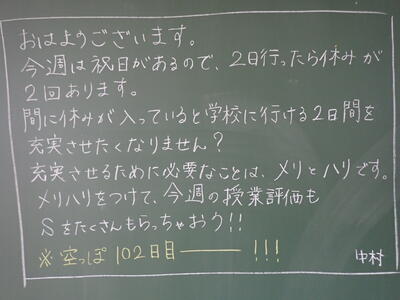 おはようございます。
今週は祝日があるので、2日行ったら休みが
2回あります。
間に休みが入っていると学校に行ける2日間を
充実させたくなりません？
充実させるために必要なことは、メリとハリです。
メリハリをつけて、今週の授業評価も
Sをたくさんもらっちゃおう!!
※空っぽ102日目――― !!!
中村